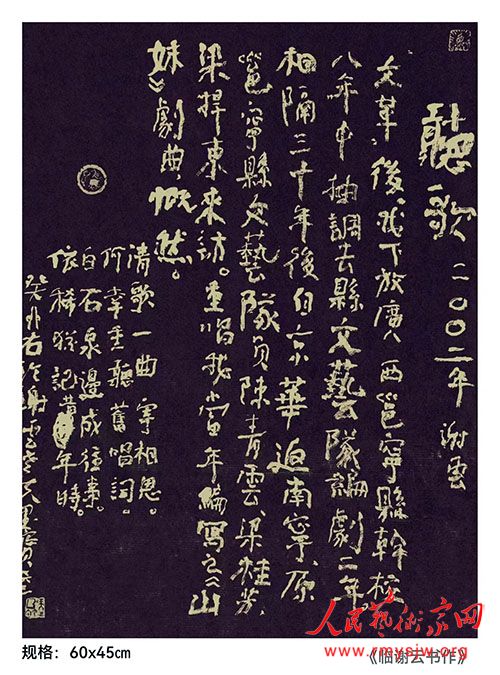 聽歌 二〇〇二年 謝雲
文革後,我下放廣西邕寧縣幹校
八年中抽調去縣文藝隊編劇二年。
相隔三十年後自京華返南寧,原
邕寧縣文藝隊員陳青雲、梁桂芳、
梁捍東來訪。重唱我當年編寫之《山
妹》劇曲慨然。
清歌一曲寄相思。
何幸重聽舊唱詞。
白石泉邊成往事。
依稀猶記昔年時。
癸卯 謝雲
人民艺术家网
www.rmysjw.org
规格: 60x45cm
《临谢云书作》